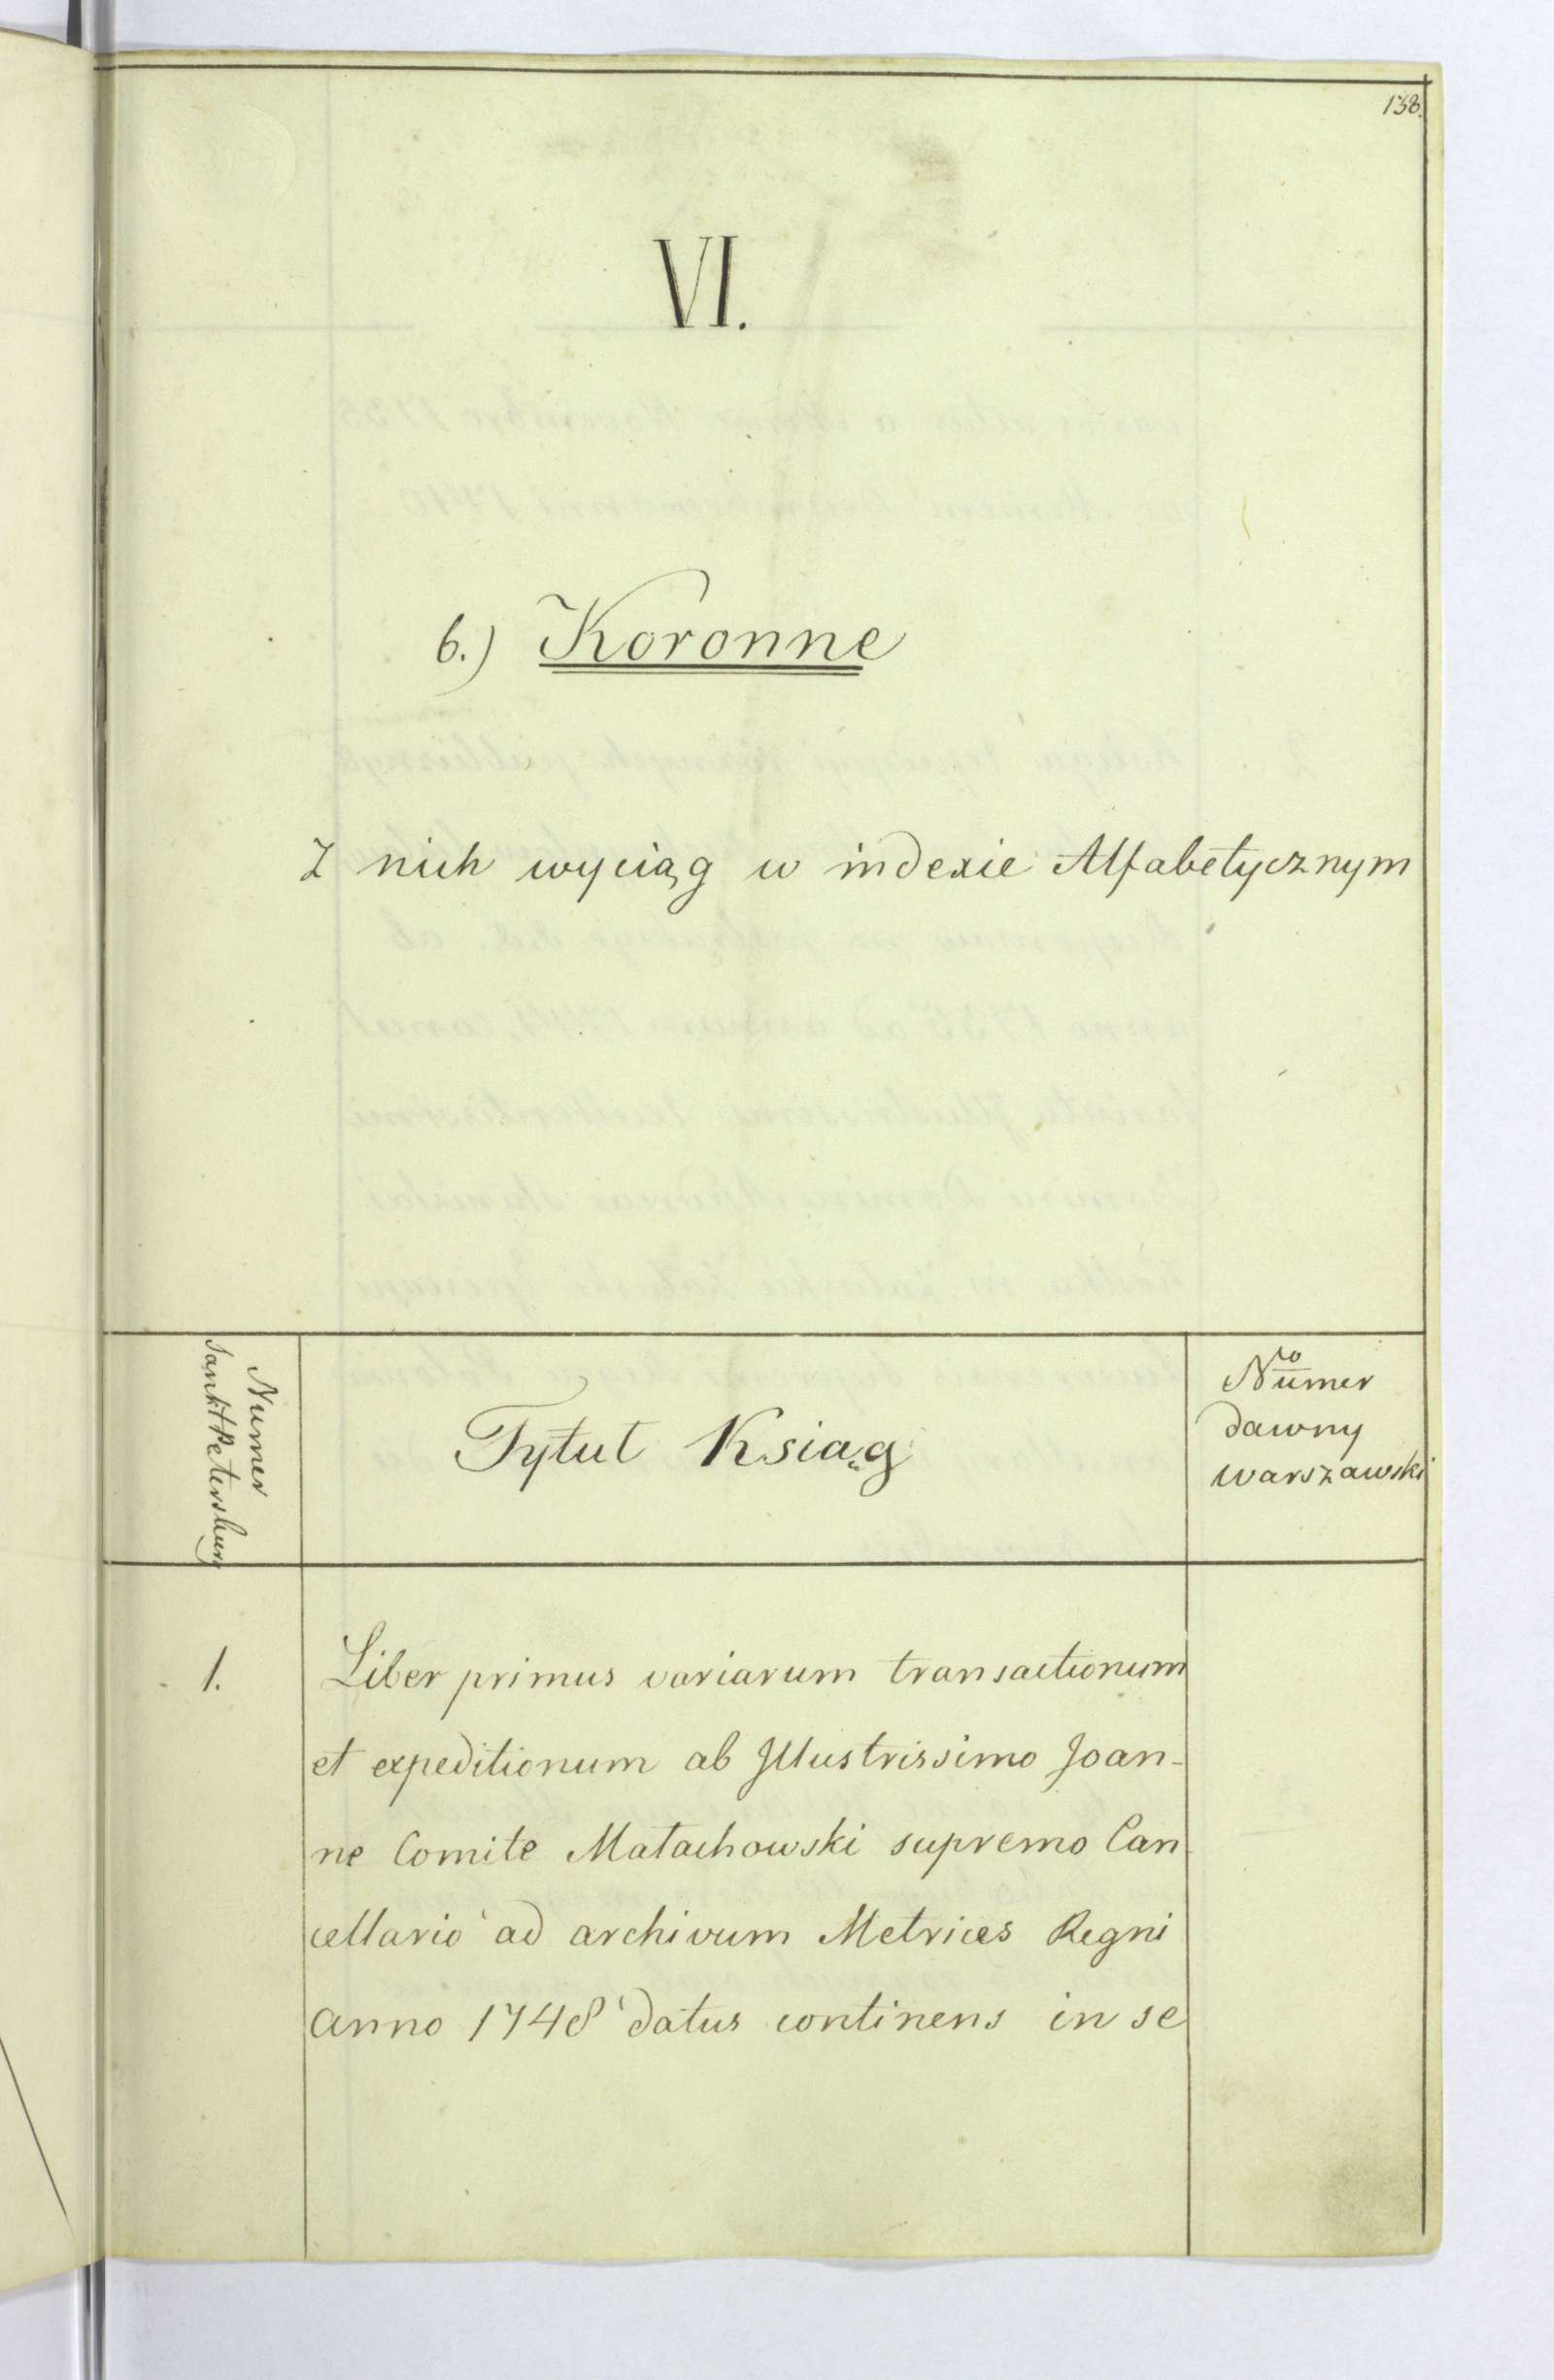 138.
VI.
6.) Koronne
Z nich wyciąg w indexie Alfabetycznym
Numer
Sankt Petersburg
Tytuł Ksiąg
Numer
dawny
warszawski
1.
Liber primus variarum transactionum
et expeditionum ab Illustrissimo Joan-
ne Comite Małachowski supremo Can-
cellario ad archivum Metrices Regni
anno 1748 datus continens in se